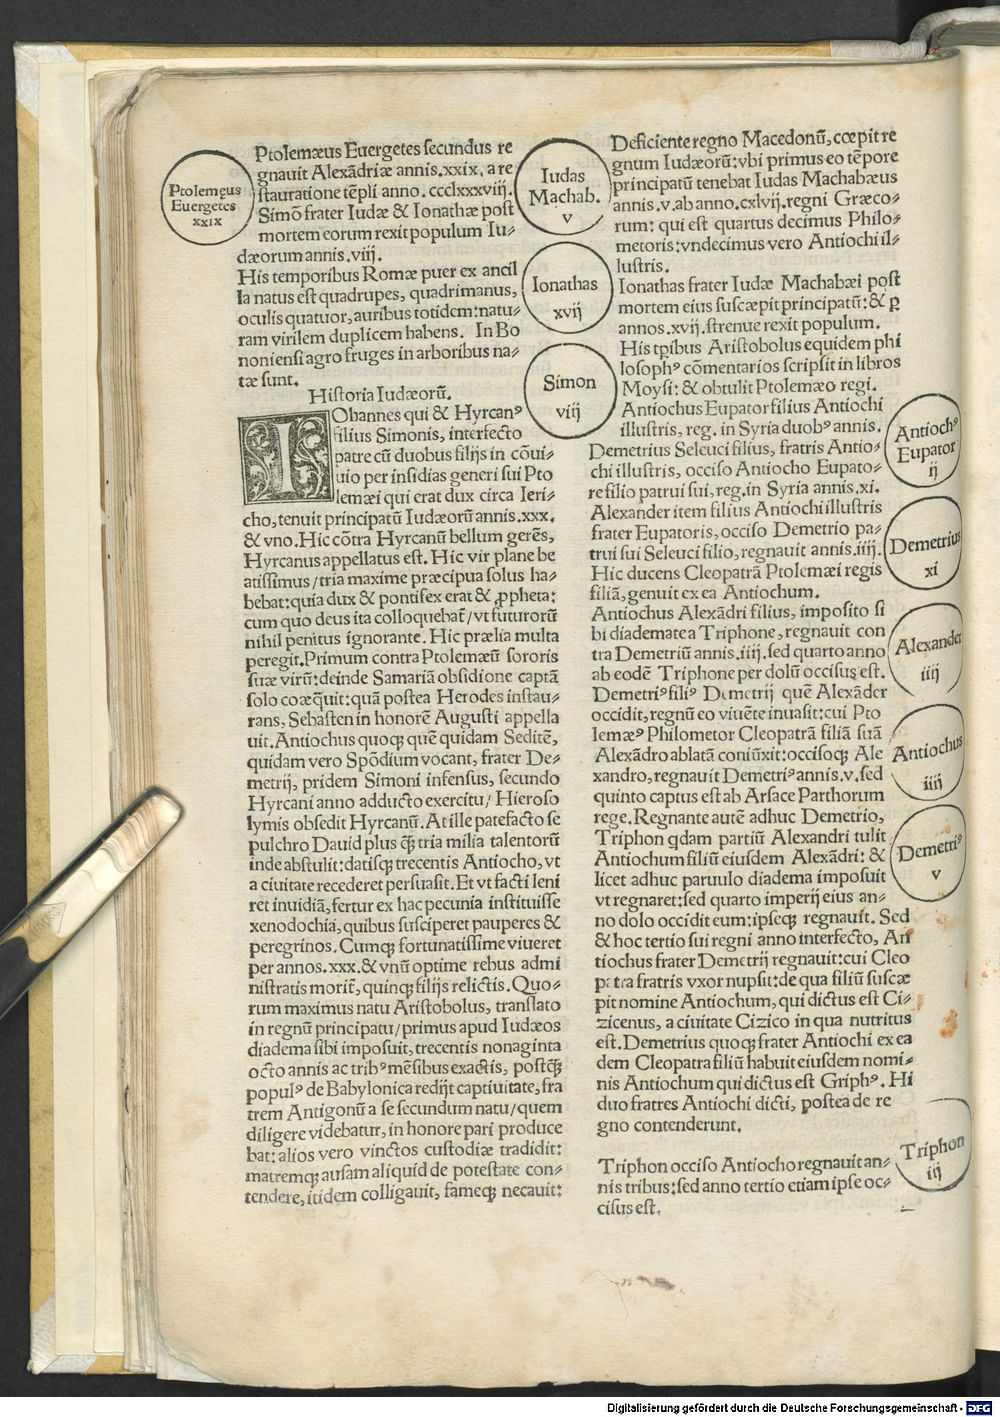 Ptolemęus
Euergetes
xxix
Ptolemæus Euergetes secundus re
gnauit Alexãdriæ annis.xxix, a re
stauratione tẽpli anno. ccclxxxviij.
Simõ frater Iudæ & Ionathæ post
mortem eorum rexit populum Iu⸗
dæorum annis.viij.
His temporibus Romæ puer ex ancil
la natus est quadrupes, quadrimanus,
oculis quatuor, auribus totidem:natu⸗
ram virilem duplicem habens. In Bo
noniensi agro fruges in arboribus na⸗
tæ sunt.
Historia Iudæorũ.
IOhannes qui & Hyrcanꝰ
filius Simonis, interfecto
patre cũ duobus filijs in cõui⸗
uio per insidias generi sui Pto
lemæi qui erat dux circa Ieri⸗
cho, tenuit principatũ Iudæorũ annis.xxx.
& vno. Hic cõtra Hyrcanũ bellum gerẽs,
Hyrcanus appellatus est. Hic vir plane be
atissimus/tria maxime præcipua solus ha⸗
bebat:quia dux & pontifex erat & ꝓpheta:
cum quo deus ita colloquebat̃/vt futurorũ
nihil penitus ignorante. Hic prælia multa
peregit. Primum contra Ptolemæũ sororis
suæ virũ:deinde Samariã obsidione captã
solo coæq̃uit:quã postea Herodes instau⸗
rans, Sebasten in honorẽ Augusti appella
uit. Antiochus quoqꝫ quẽ quidam Seditẽ,
quidam vero Spõdium vocant, frater De⸗
metrij, pridem Simoni infensus, secundo
Hyrcani anno adducto exercitu/ Hieroso
lymis obsedit Hyrcanũ. At ille patefacto se
pulchro Dauid plus q̃ꝫ tria milia talentorũ
inde abstulit:datisqꝫ trecentis Antiocho, vt
a ciuitate recederet persuasit. Et vt facti leni
ret inuidiã, fertur ex hac pecunia instituisse
xenodochia, quibus susciperet pauperes &
peregrinos. Cumqꝫ fortunatissime viueret
per annos.xxx.& vnũ optime rebus admi
nistratis morit̃, quinqꝫ filijs relictis. Quo⸗
rum maximus natu Aristobolus, translato
in regnũ principatu/primus apud Iudæos
diadema sibi imposuit, trecentis nonaginta
octo annis ac tribꝰ mẽsibus exactis, postq̃ꝫ
populꝰ de Babylonica redijt captiuitate, fra
trem Antigonũ a se secundum natu/quem
diligere videbatur, in honore pari produce
bat: alios vero vinctos custodiæ tradidit:
matremqꝫ ausam aliquid de potestate con⸗
tendere, itidem colligauit, fameqꝫ necauit:
Iudas
Machab.
v
Ionathas
xvij
Simon
viij
Deficiente regno Macedonũ, cœpit re
gnum Iudæorũ:vbi primus eo tẽpore
principatũ tenebat Iudas Machabæus
annis.v.ab anno.cxlvij.regni Græco⸗
rum: qui est quartus decimus Philo⸗
metoris:vndecimus vero Antiochi il⸗
lustris.
Ionathas frater Iudæ Machabæi post
mortem eius suscæpit principatũ:& ꝑ
annos.xvij.strenue rexit populum.
His tpĩbus Aristobolus equidem phi
losophꝰ cõmentarios scripsit in libros
Moysi: & obtulit Ptolemæo regi.
Antiochus Eupator filius Antiochi
illustris, reg. in Syria duobꝰ annis.
Demetrius Seleuci filius, fratris Antio⸗
chi illustris, occiso Antiocho Eupato⸗
re filio patrui sui, reg.in Syria annis.xi.
Alexander item filius Antiochi illustris
frater Eupatoris, occiso Demetrio pa⸗
trui sui Seleuci filio, regnauit annis.iiij.
Hic ducens Cleopatrã Ptolemæi regis
filiã, genuit ex ea Antiochum.
Antiochus Alexãdri filius, imposito si
bi diademate a Triphone, regnauit con
tra Demetriũ annis.iiij.sed quarto anno
ab eodẽ Triphone per dolũ occisus est.
Demetriꝰ filiꝰ Demetrij quẽ Alexãder
occidit, regnũ eo viuẽte inuasit:cui Pto
lemæꝰ Philometor Cleopatrã filiã suã
Alexãdro ablatã coniũxit:occisoqꝫ Ale
xandro, regnauit Demetriꝰ annis.v. sed
quinto captus est ab Arsace Parthorum
rege. Regnante autẽ adhuc Demetrio,
Triphon qdam partiũ Alexandri tulit
Antiochum filiũ eiusdem Alexãdri: &
licet adhuc paruulo diadema imposuit
vt regnaret:sed quarto imperij eius an⸗
no dolo occidit eum:ipseqꝫ regnauit. Sed
& hoc tertio sui regni anno interfecto, An
tiochus frater Demetrij regnauit:cui Cleo
patra fratris vxor nupsit:de qua filiũ suscæ
pit nomine Antiochum, qui dictus est Ci⸗
zicenus, a ciuitate Cizico in qua nutritus
est. Demetrius quoqꝫ frater Antiochi ex ea
dem Cleopatra filiũ habuit eiusdem nomi⸗
nis Antiochum qui dictus est Griphꝰ. Hi
duo fratres Antiochi dicti, postea de re
gno contenderunt.
Triphon occiso Antiocho regnauit an⸗
nis tribus:sed anno tertio etiam ipse oc⸗
cisus est.
Antiochꝰ
Eupator
ij
Demetrius
xi
Alexander
iiij
Antiochus
iiij
Demetriꝰ
v
Triphon
iij
Digitalisierung gefördert durch die Deutsche Forschungsgemeinschaft - DFG